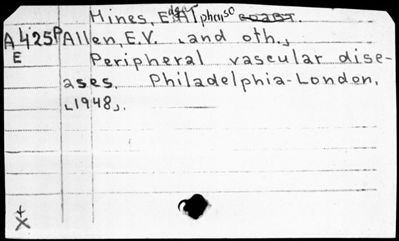 Hines, Edgar Alphonso
A425P Allen, E.V. ⌞and oth.⌟
E Peripheral vascular dise-
ases. Philadelphia-London,
⌞1948⌟.